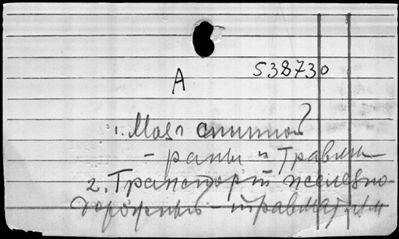 А 538730
1. Мозг спинной?
- раны и травмы
2. Транспорт железно-
дорожный - травматизм